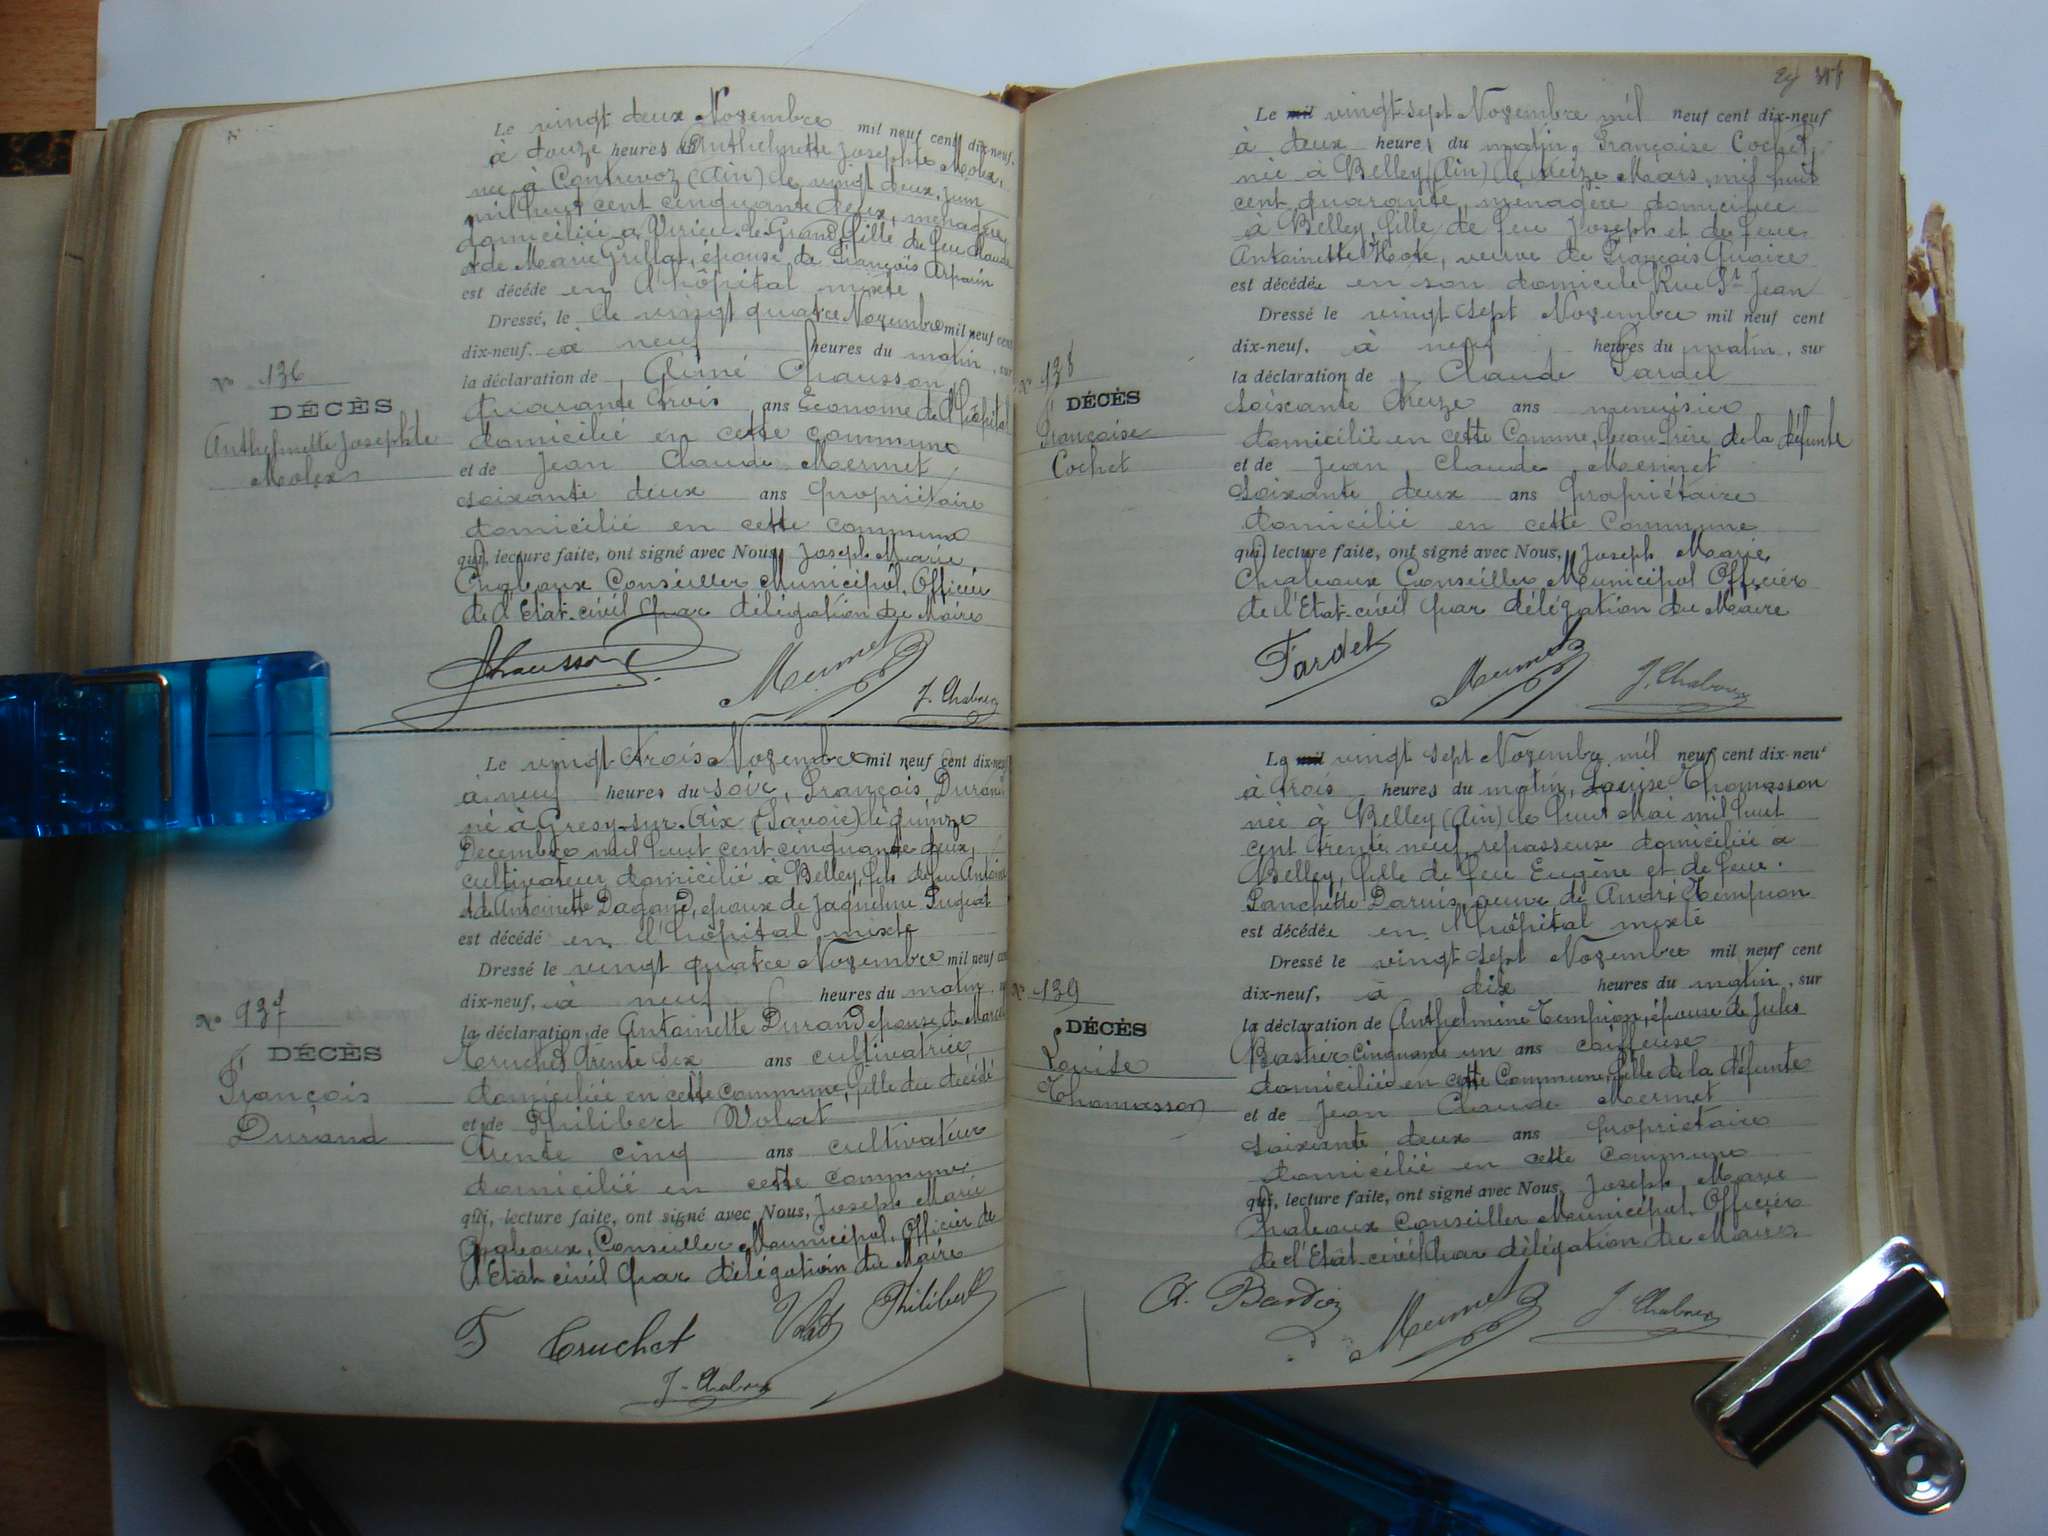 Le vingt deux Novembre mil neuf cent dix-neuf,
à douze heures Anthelmette Josephte Molex,
née à Contrevoz (Ain) le vingt deux Juin
mil huit cent cinquante deux, ménagère
domiciliée à Virieu-le-Grand, fille de feu Claude
et de Marie Grillot, épouse de François Arpain
est décédé en l'hôpital mixte
Dressé, le le vingt quatre Novembre mil neuf cent
dix-neuf. à neuf heures du matin, sur
la déclaration de Aimé Chausson
Quarante trois ans Econome de l'hôpital
domicilié en cette commune
et de Jean Claude Mermet
soixante deux ans propriétaire
domicilié en cette commune
qui, lecture faite, ont signé avec Nous, Joseph Marie
Chaleaux Conseiller Municipal, Officier
de l'Etat-civil par délégation du Maire
Nº 136
DÉCÈS
Anthelmette Josephte
Molex
Chausson
Mermet
J. Chaleaux
Le vingt trois Novembre mil neuf cent dix-neuf
à neuf heures du soir, François Durand
né à Gresy-sur-Aix (Savoie) le quinze
Décembre mil huit cent cinquante deux,
cultivateur domicilié à Belley, fils de feu Antoine
et de Antoinette Dagand, époux de Jaquemine Puguat
est décédé en l'hôpital mixte
Dressé le vingt quatre Novembre mil neuf cent
dix-neuf, à neuf heures du matin
la déclaration de Antoinette Durand épouse de Marcel
Cruchet trente six ans cultivatrice
domiciliée en cette commune, fille du décédé
et de Philibert Volat
trente cinq ans cultivateur
domicilié en cette commune
qui, lecture faite, ont signé avec Nous, Joseph Marie
Chaleaux, Conseiller Municipal, Officier de
l'Etat-civil par délégation du Maire
Nº 137
DÉCÈS
François
Durand
Cruchet
Volat Philibert
J. Chaleaux
Le mil vingt-sept Novembre mil neuf cent dix-neuf
à deux heures du matin, Françoise Cochet,
née à Belley (Ain) le treize Mars mil huit
cent quarante, ménagère domiciliée
à Belley, fille de feu Joseph et de feue
Antoinette Hote, veuve de François Quaire
est décédée en son domicile Rue St Jean
Dressé le vingt sept Novembre mil neuf cent
dix-neuf, à neuf heures du matin, sur
la déclaration de Claude Tardel
soixante treize ans menuisier
domicilié en cette Comme, beau frère de la défunte
et de Jean Claude Mermet
soixante deux ans propriétaire
domicilié en cette Commune
qui, lecture faite, ont signé avec Nous, Joseph Marie
Chaleaux Conseiller Municipal Officier
de l'Etat-civil par délégation du Maire
Nº 138
DÉCÈS
Françoise
Cochet
Tardel
Mermet
J. Chaleaux
Le mil vingt sept Novembre mil neuf cent dix-neuf
à trois heures du matin, Louise Thomasson
née à Belley (Ain) le huit Mai mil huit
cent trente neuf, repasseuse domiciliée à
Belley, fille de feu Eugène et de feue
Fanchette Darnis, veuve de André Tempion
est décédée en l'hôpital mixte
Dressé le vingt sept Novembre mil neuf cent
dix-neuf, à dix heures du matin, sur
la déclaration de Anthelmine Tempion, épouse de Jules
cinquante un ans coiffeuse
domiciliée en cette Commune, fille de la défunte
et de Jean Claude Mermet
soixante deux ans propriétaire
domicilié en cette commune
qui, lecture faite, ont signé avec Nous, Joseph Marie
Chaleaux Conseiller Municipal, Officier
de l'Etat-civil par délégation du Maire.
Nº 139
DÉCÈS
Louise
Thomasson
Mermet
J. Chaleaux